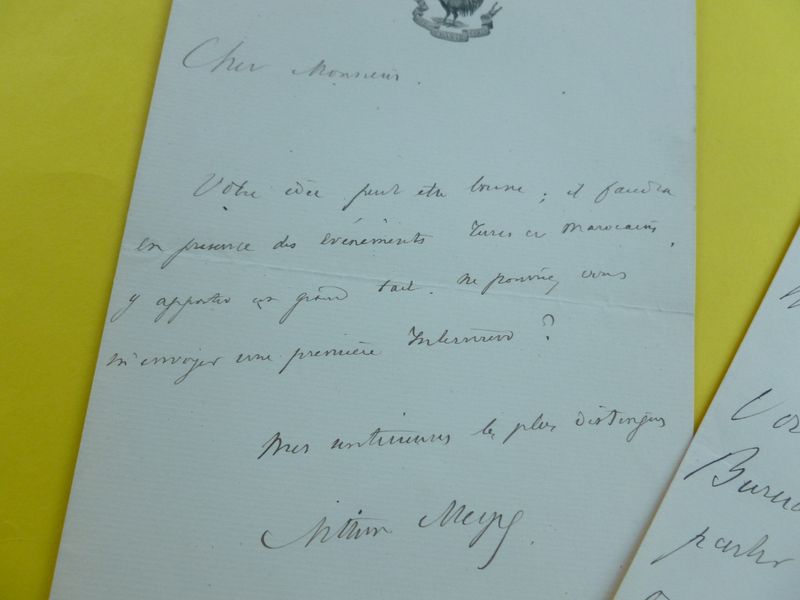 Cher Monsieur.
Votre idée peut être bonne ; il faudra
en présence des événements Turcs et Marocains,
y apporter un grand tact. Ne pouvez vous
m'envoyer une première Interview ?
Mes sentiments les plus distingués
Arthur Meyer.
Vot
Bureau
parler